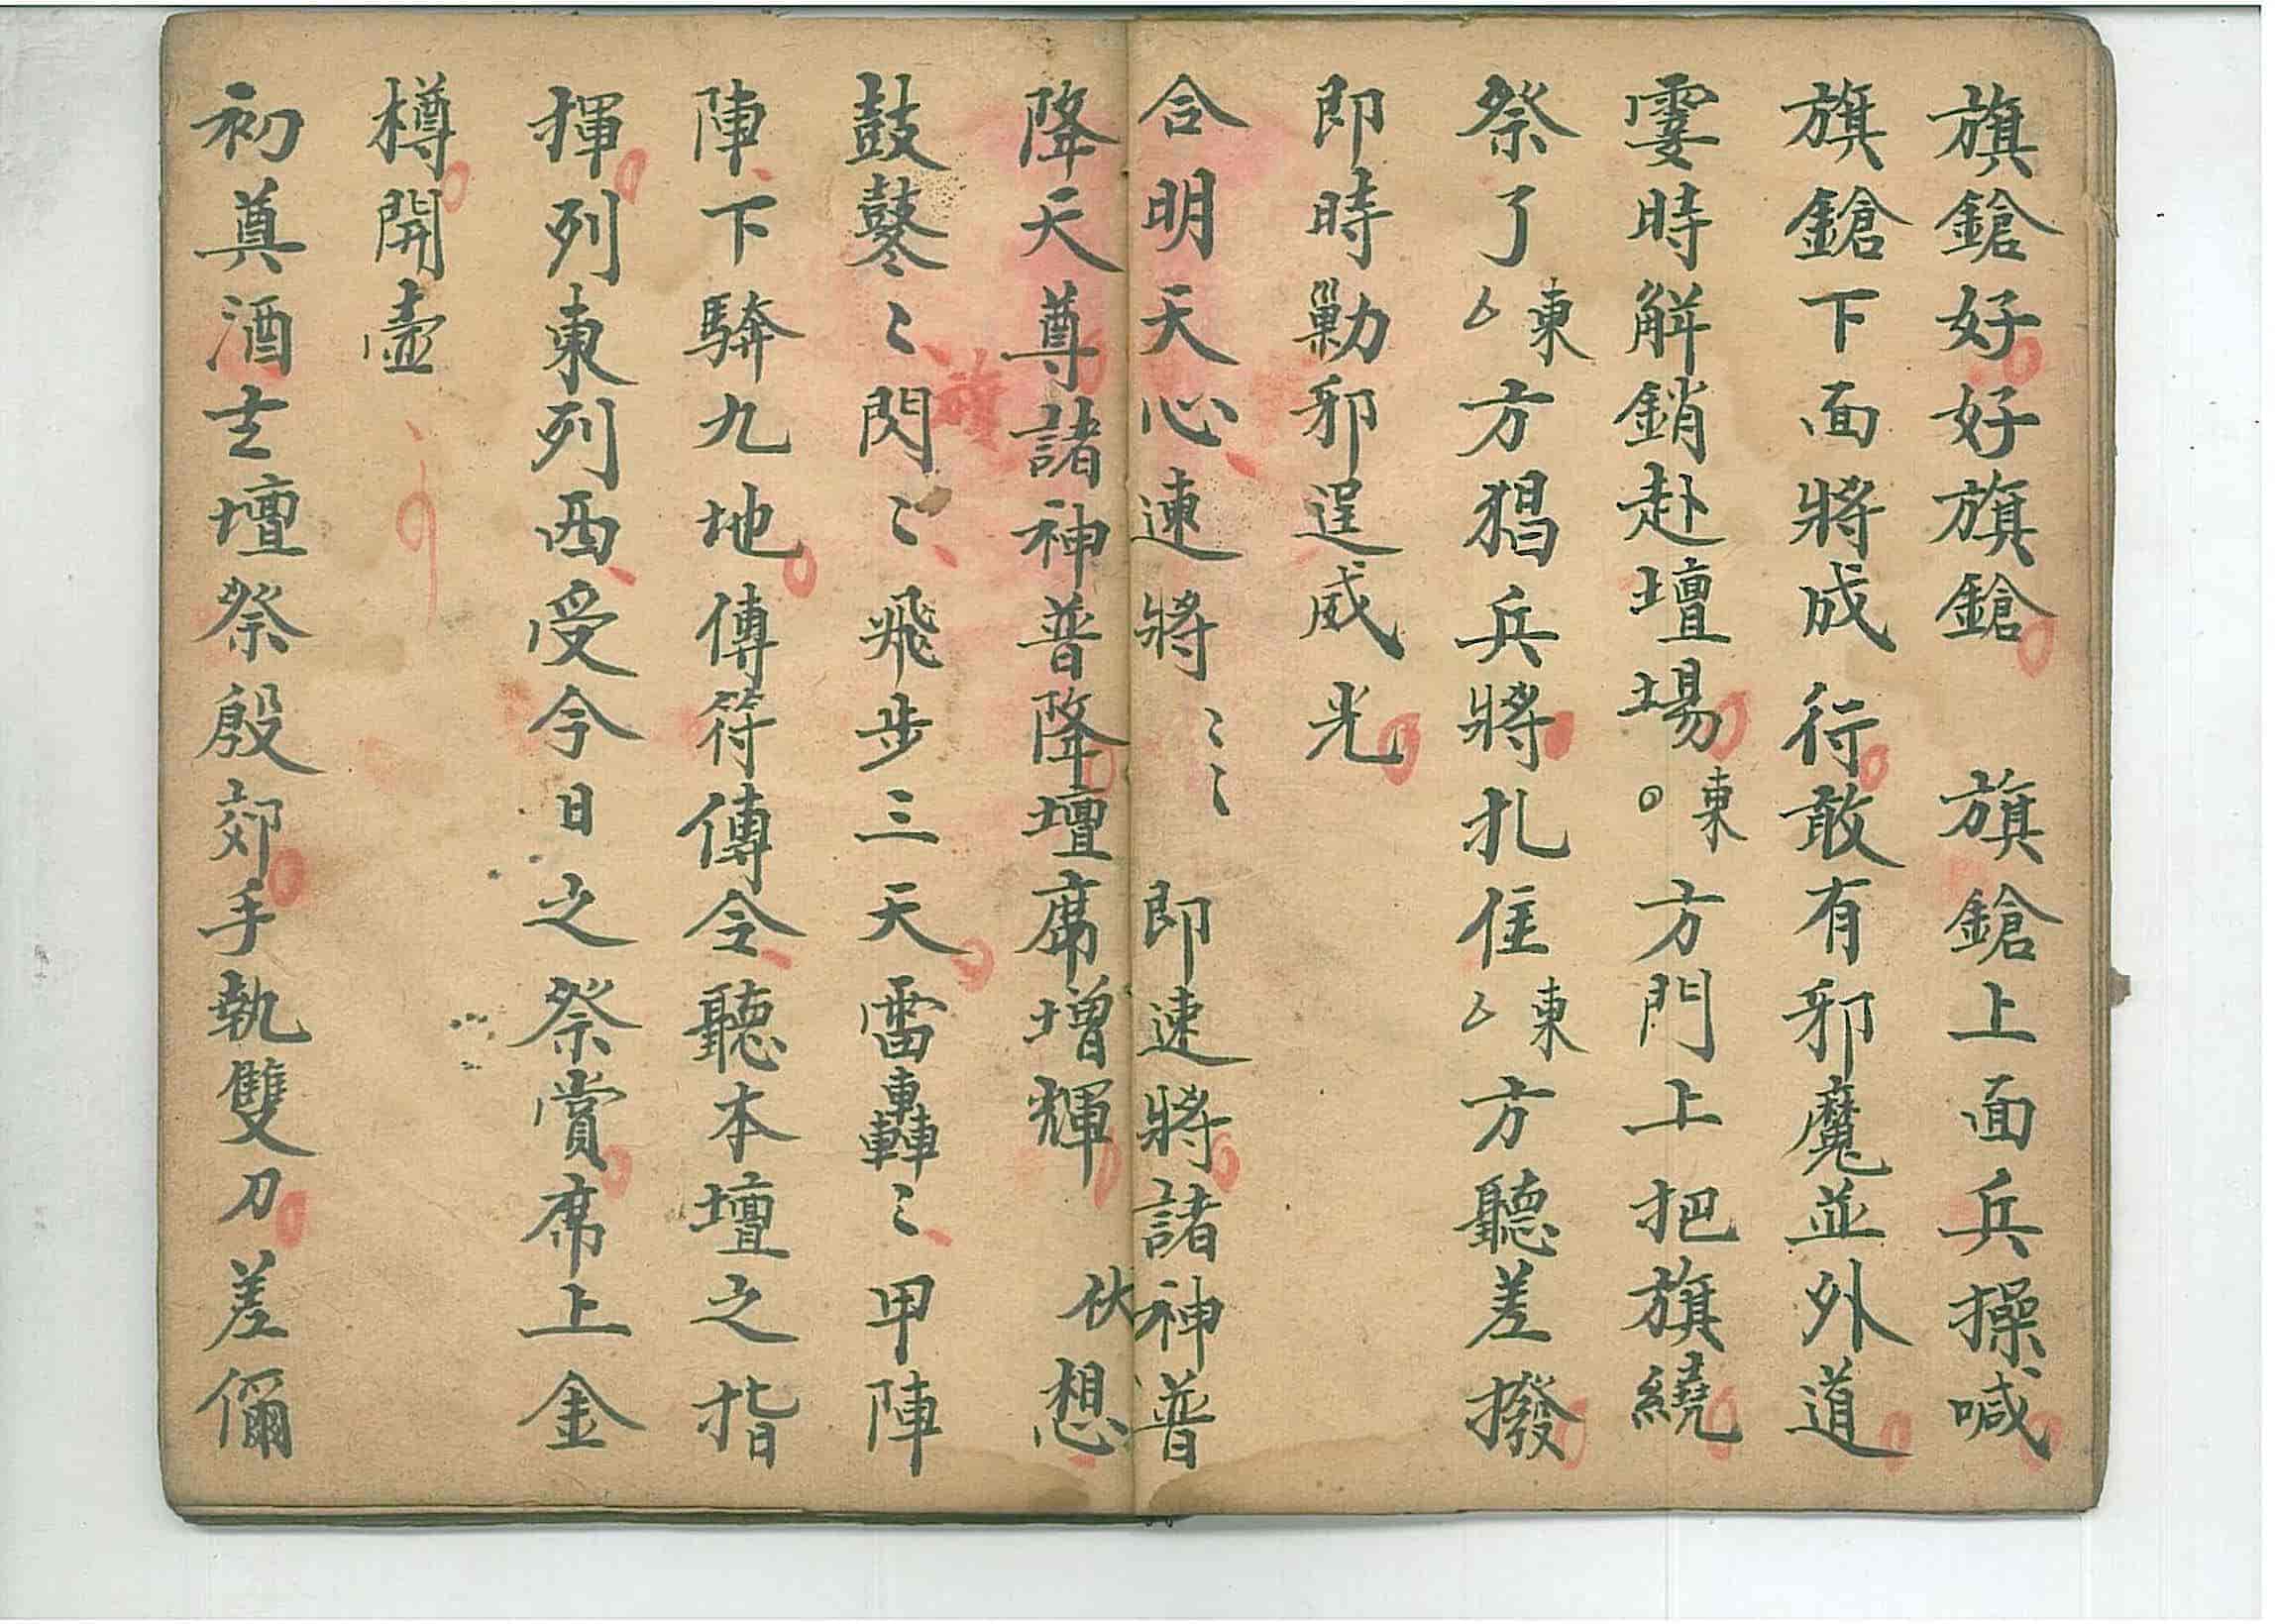 旗鎗好好旗鎗　旗鎗上面兵操喊
旗鎗下面將成行敢有邪魔並外道
霎時觧銷赴壇場○東方門上把旗繞
祭了厶東方猖兵將扎住厶東方聽差撥
即時勦邪逞威光
合明天心速將〻〻　即速將諸神普
降天尊諸神普降壇席增輝　伏想
鼓鼕〻〻閃〻飛步三天雷轟〻甲陣
陣下騎九地傳符傳令聽本壇之指
揮列東列西受今日之祭賞席上金
樽開壺
初奠酒去壇祭殷郊手執雙刀差儞
旗